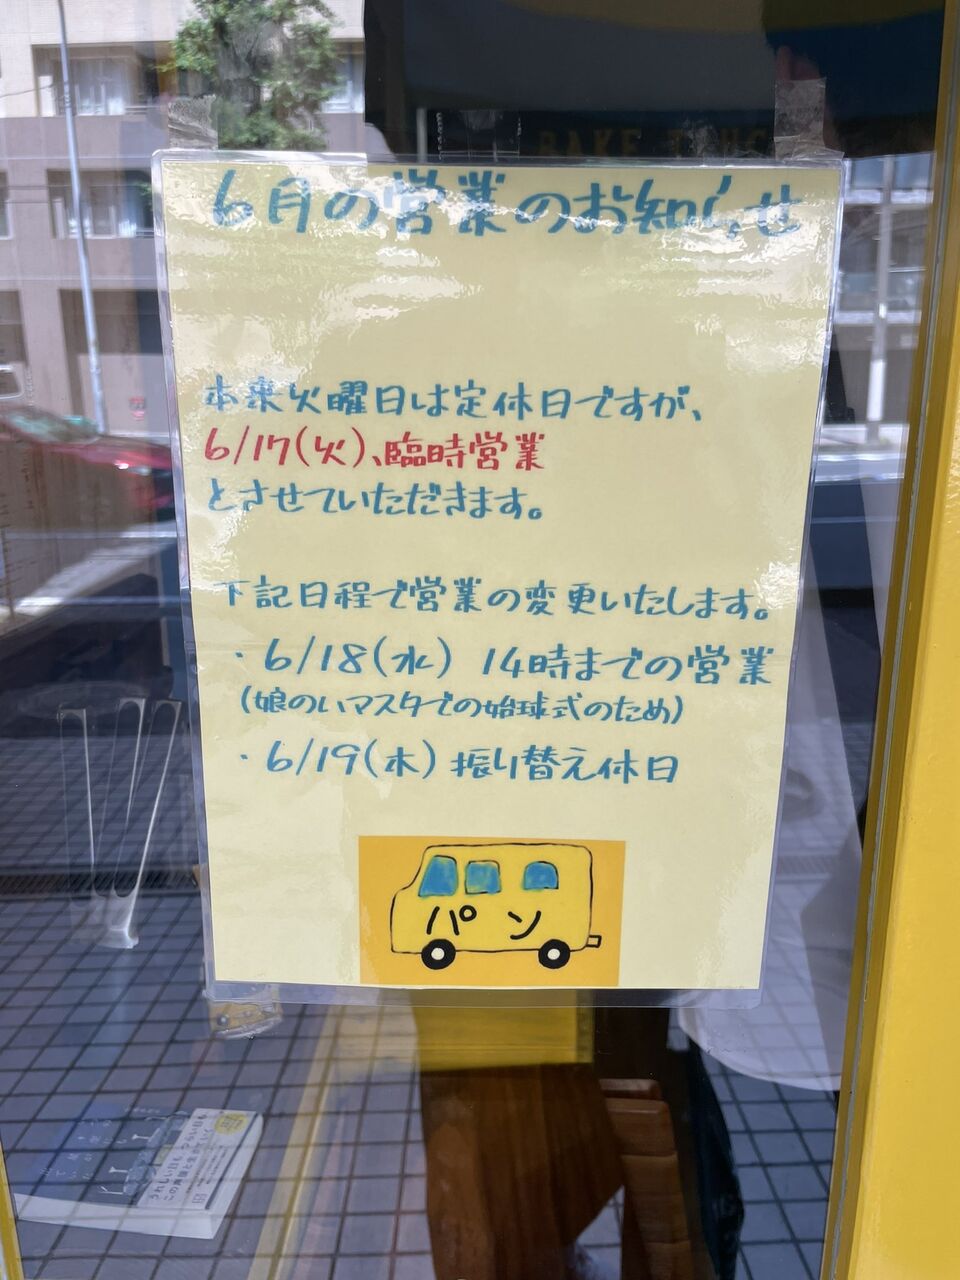 BAKE
6月の営業のお知らせ
本来火曜日は定休日ですが、
6/17(火)、臨時営業
とさせていただきます。
下記日程で営業の変更いたします。
・6/18(水) 14時までの営業
(娘のいマスタでの始球式のため)
・6/19(木)振り替え休日
パン